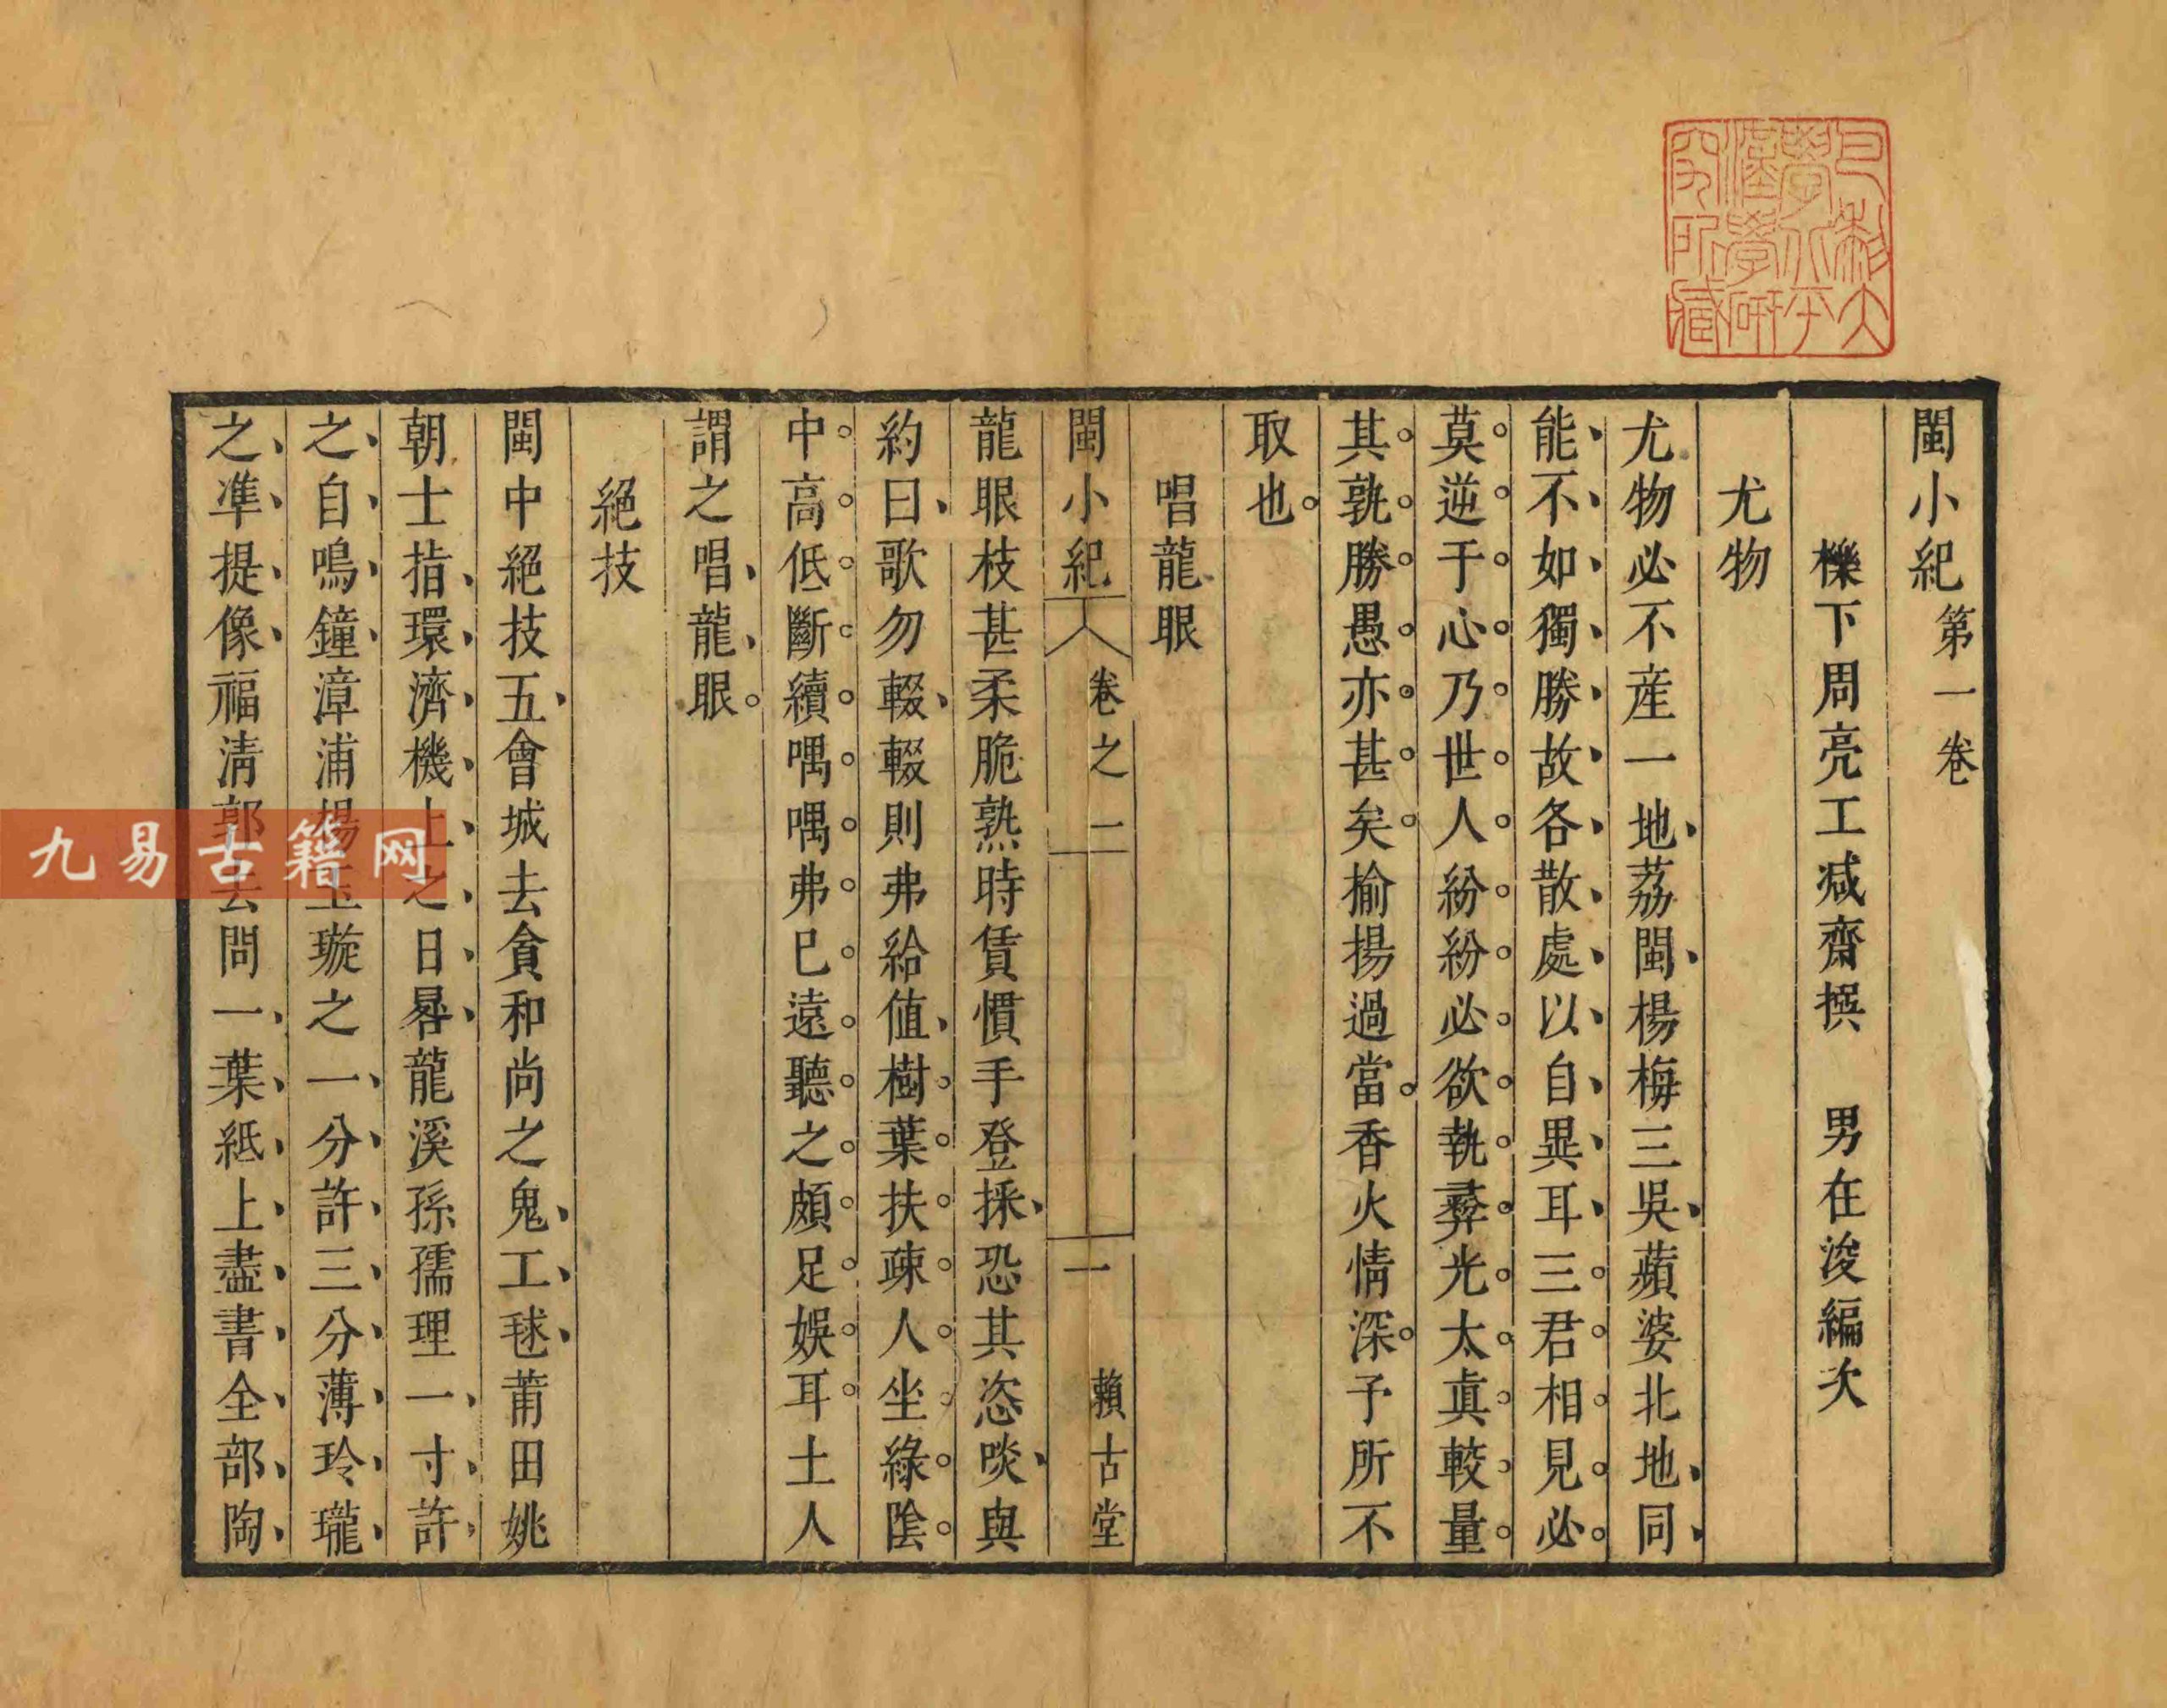 閩小紀第一卷
櫟下周亮工減齋撰　男在浚編次
尤物
尤物必不産一地荔閩楊梅三吳蘋婆北地同
能不如獨勝故各散處以自異耳三君相見必
莫逆于心乃世人紛紛必欲執彛光太真較量
其孰勝愚亦甚矣揄揚過當香火情深予所不
取也
唱龍眼
閩小紀　卷之一　一　賴古堂
龍眼枝甚柔脆熟時賃慣手登採恐其恣啖與
約曰歌勿輟輟則弗給值樹葉扶疎人坐綠陰
中高低斷續喁喁弗已遠聽之頗足娛耳土人
謂之唱龍眼
絕技
閩中絕技五會城去貪和尚之鬼工毬莆田姚
朝士指環濟機上之日晷龍溪孫孺理一寸許
之自鳴鐘漳浦楊玉璇之一分許三分薄玲瓏
之凖提像福清郭去問一葉紙上盡書全部陶
九易古籍网